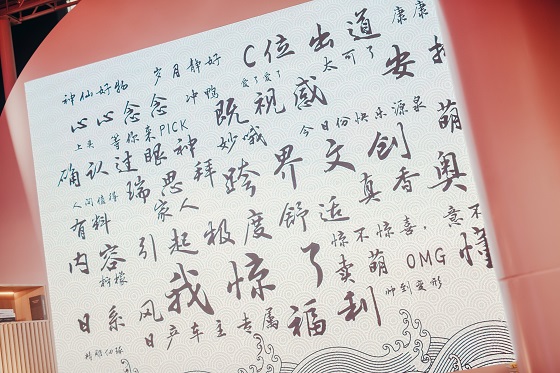 神仙好物 岁月静好 C位出道 康康
心心念念 冲鸭 爱了爱了 太可了 安
上头 等你来PICK 既视感
确认过眼神 妙哦 今日份快乐源泉 萌
人间值得 瑞思拜 跨界文创 奥
有料 家人 真香
内容 引起极度舒适 惊不惊喜,意不
柠檬 卖萌 OMG
日系风 我惊了 帅到变形
日产车主专属福利
精雕细琢